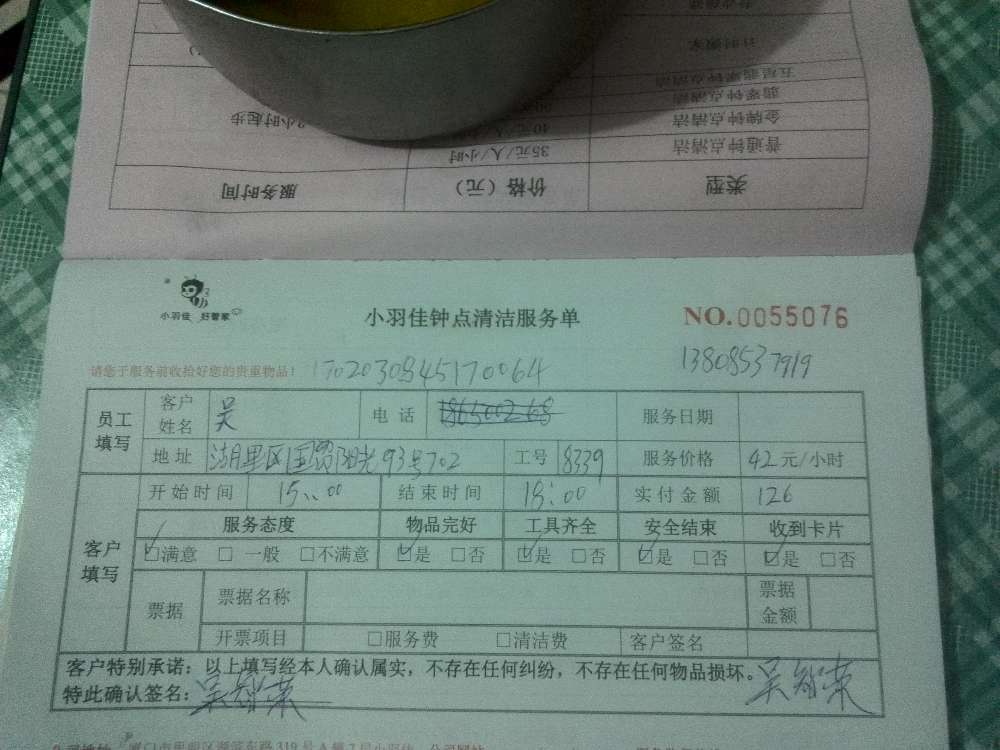 类型 价格（元） 服务时间
普通钟点清洁 35元/人/小时
金牌钟点清洁 小时起步
翡翠钟点清洁
五星翡翠钟点清洁
计时搬家
小羽佳 好管家
小羽佳钟点清洁服务单 NO.0055076
请您于服务前收拾好您的贵重物品！ 1702030945170064 13808537919
员工填写 客户姓名 吴 电话 服务日期
地址 湖里区国贸阳光93号702 工号 8339 服务价格 42元/小时
客户填写 开始时间 15:00 结束时间 18:00 实付金额 126
服务态度 物品完好 工具齐全 安全结束 收到卡片
☑满意 □一般 □不满意 ☑是 □否 ☑是 □否 ☑是 □否 ☑是 □否
票据 票据名称 票据金额
开票项目 □服务费 □清洁费 客户签名
客户特别承诺：以上填写经本人确认属实，不存在任何纠纷，不存在任何物品损坏。
特此确认签名：